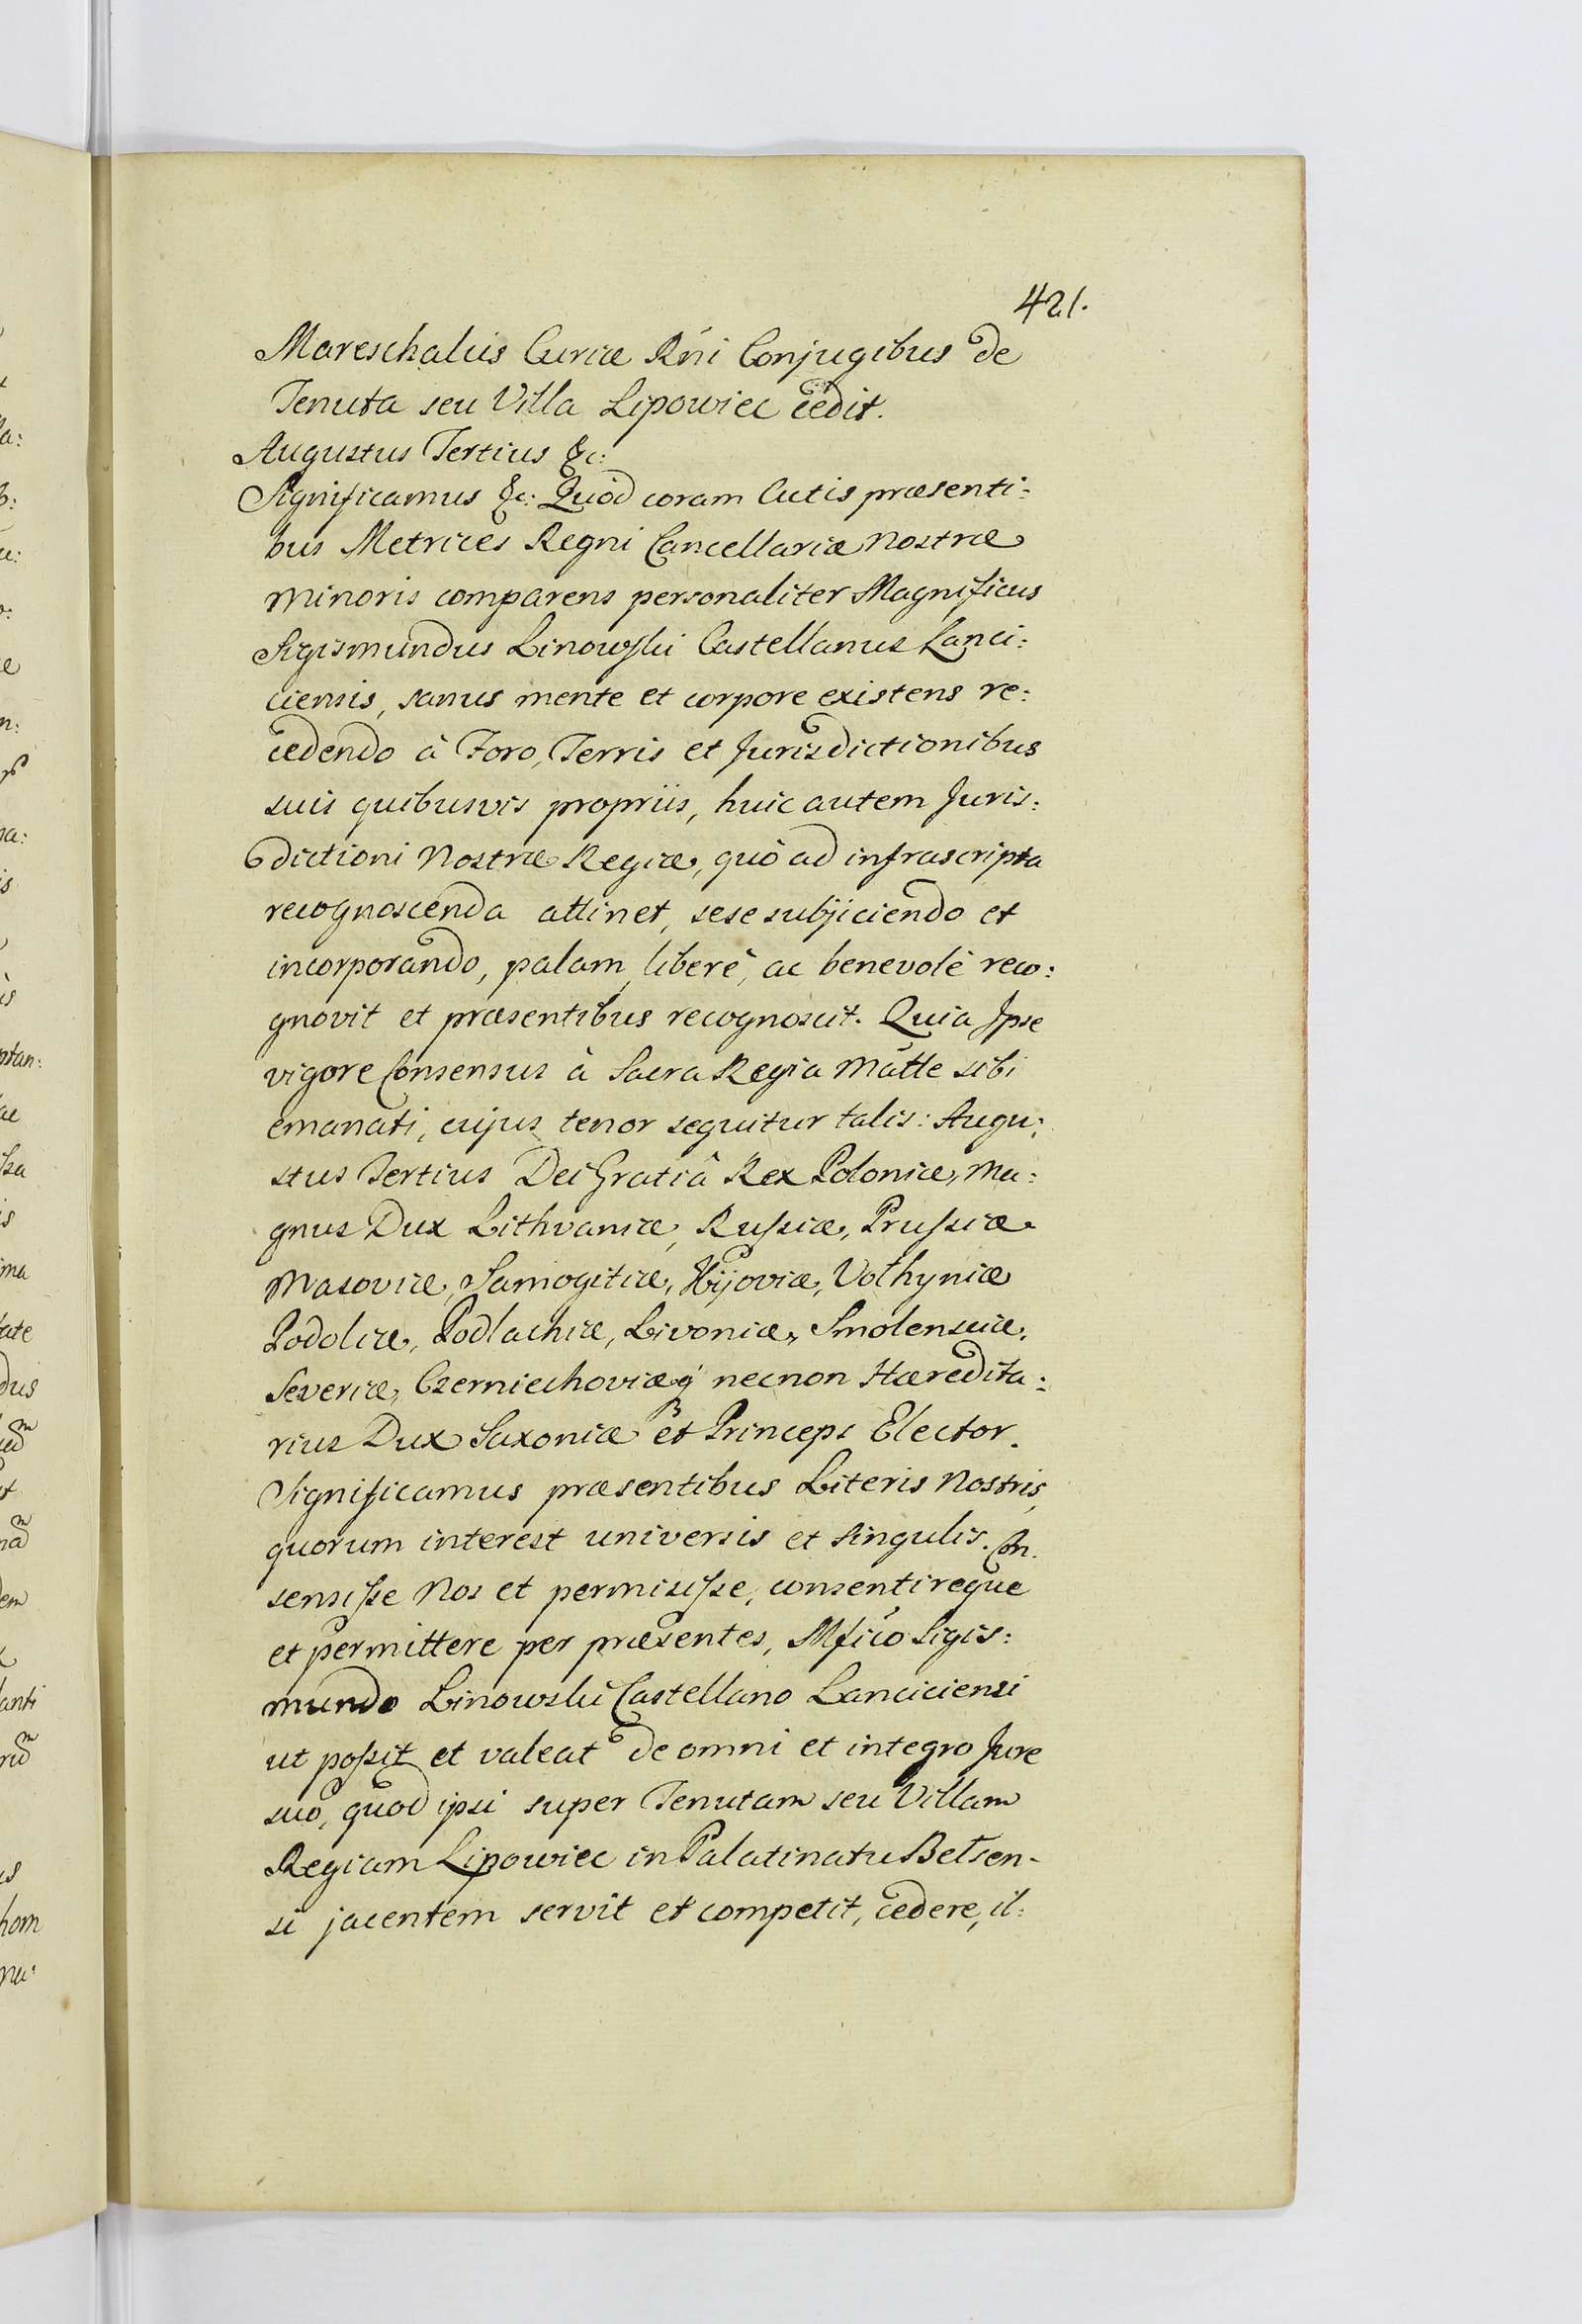 421.
Mareschalus Curiæ Rńi Conjugibus de
Tenuta seu Villa Lipowiec cedit.
Augustus Tertius &c:
Significamus &c: Quod coram Actis præsenti:
bus Metrices Regni Cancellariæ Nostræ
Minoris comparens personaliter Magnificus
Sigismundus Linowski Castellanus Lanci:
ciensis, sanus mente et corpore existens re:
cedendo à Foro, Terris et Jurisdictionibus
suis quibusvis propriis, huic autem Juris:
dictioni Nostræ Regiæ, quò ad infrascripta
recognoscenda attinet, sese subjiciendo et
incorporando, palam, liberè, ac benevolè reco:
gnovit et præsentibus recognoscit. Quia Ipse
vigore Consensus à Sacra Regia Matte sibi
emanati, cujus tenor sequitur talis: Augu:
stus Tertius Dei Gratiâ Rex Poloniæ, Ma:
gnus Dux Lithvaniæ, Russiæ, Prussiæ
Masoviæ, Samogitiæ, Kijoviæ, Volhyniæ
Podoliæ, Podlachiæ, Livoniæ, Smolensciæ,
Severiæ, Czerniechoviæq́ necnon Hæredita:
rius Dux Saxoniæ et Princeps Elector.
Significamus præsentibus Literis Nostris,
quorum interest universis et singulis. Con.
sensisse Nos et permisisse, consentireque
et permittere per præsentes, Mfico Sigis:
mundo Linowski Castellano Lanciciensi
ut possit et valeat de omni et integro Jure
suo, quod ipsi super Tenutam seu Villam
Regiam Lipowiec in Palatinatu Belsen-
si jacentem servit et competit, cedere, il: